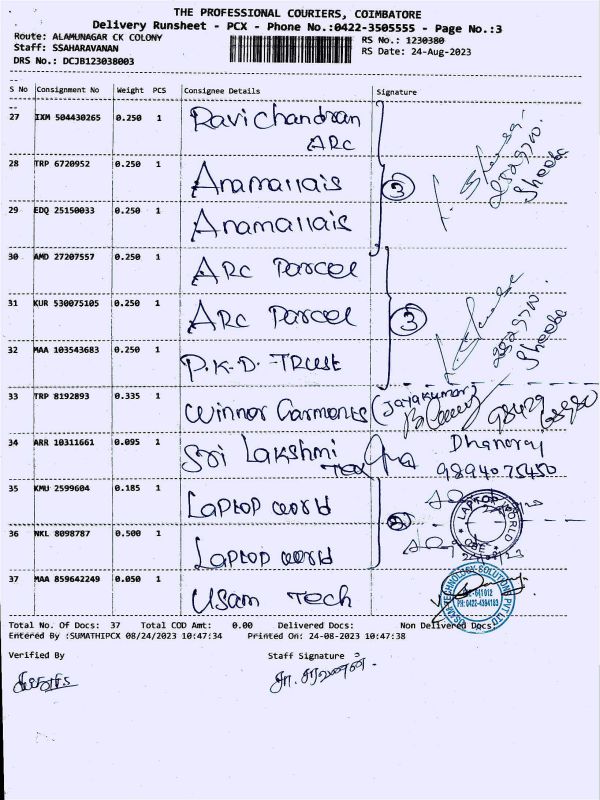 THE PROFESSIONAL COURIERS, COIMBATORE
Delivery Runsheet - PCX - Phone No.:0422-3505555 - Page No.:3
Route: ALAMUNAGAR CK COLONY
Staff: SSAHARAVANAN
DRS No.: DCJB123038003
RS No.: 1230380
RS Date: 24-Aug-2023
S No Consignment No Weight PCS Consignee Details Signature
27 IXM 504430265 0.250 1 Ravichandran
ARC
28 TRP 6720952 0.250 1 Anamallais
3
Sheeba
29 EDQ 25150033 0.250 1 Anamallais
30 AMD 27207557 0.250 1 ARC Parcel
31 KUR 530075105 0.250 1 ARC Parcel
3
Sheeba
32 MAA 103543683 0.250 1 P.K.D. TRUST
33 TRP 8192893 0.335 1 Winner Garments (Jayakumar)
34 ARR 10311661 0.095 1 Sri Lakshmi
Tex
Dhanaraj
9894075450
35 KMU 2599604 0.185 1 Laptop world
2
LAPTOP WORLD
CBE
36 NKL 8098787 0.500 1 Laptop world
37 MAA 859642249 0.050 1 Usam Tech
Total No. Of Docs: 37 Total COD Amt: 0.00 Delivered Docs: Non Delivered Docs:
Entered By :SUMATHIPCX 08/24/2023 10:47:34 Printed On: 24-08-2023 10:47:38
Verified By Staff Signature
சா. சரவணன்.